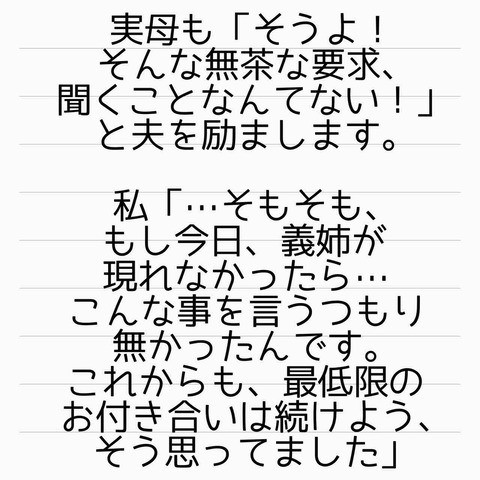 実母も「そうよ！
そんな無茶な要求、
聞くことなんてない！」
と夫を励まします。
私「…そもそも、
もし今日、義姉が
現れなかったら…
こんな事を言うつもり
無かったんです。
これからも、最低限の
お付き合いは続けよう、
そう思ってました」